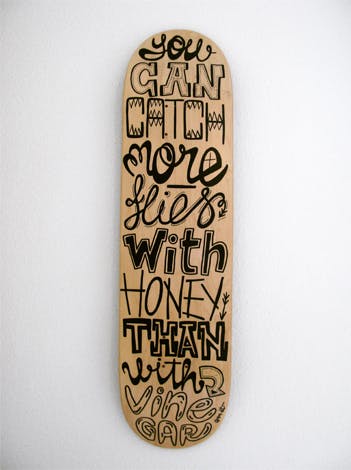 you
CAN
CATCH
more
flies
With
HONEY
THAN
with
vine
GAR